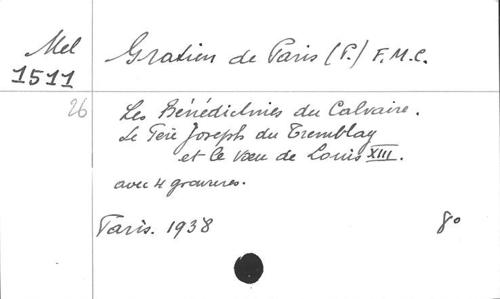 Mel
1511
Gratien de Paris (P.) F.M.C.
26
Les Bénédictines du Calvaire.
Le Père Joseph du Tremblay
et le vœu de Louis XIII.
avec 4 gravures.
Paris. 1938
8°